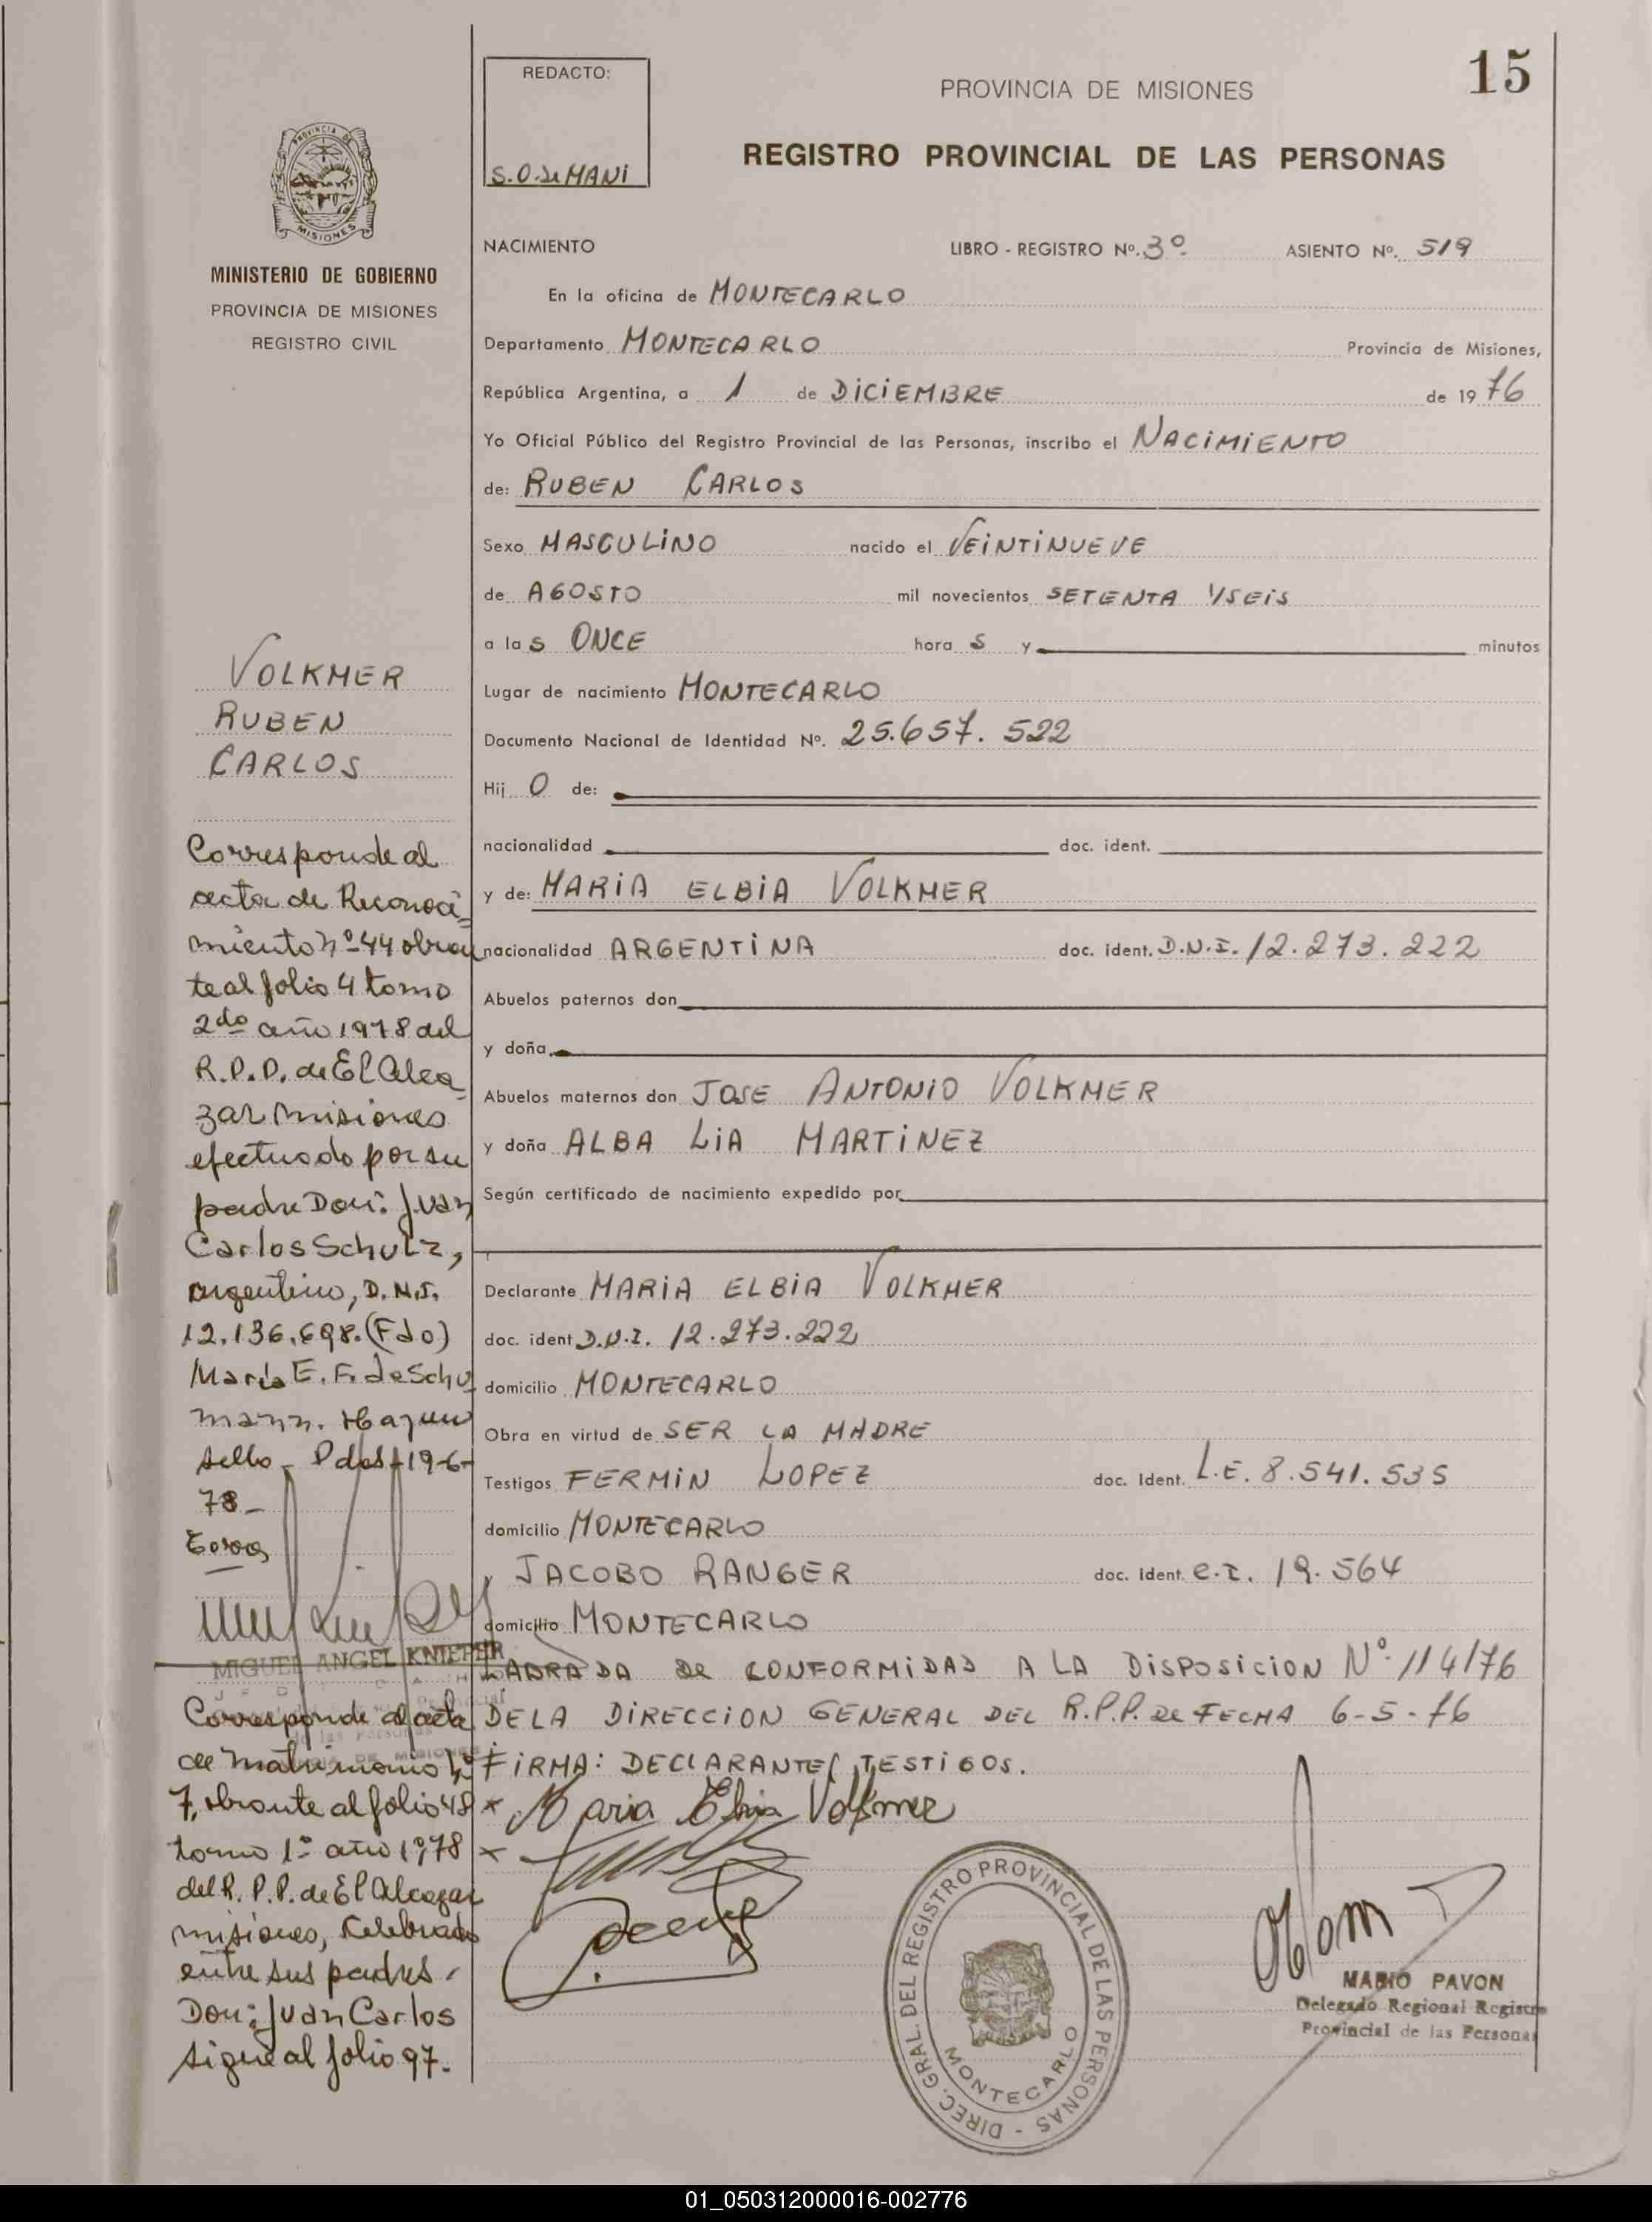 15
REDACTO:
S.O. de MANI
PROVINCIA DE MISIONES
REGISTRO PROVINCIAL DE LAS PERSONAS
PROVINCIA DE
MISIONES
MINISTERIO DE GOBIERNO
PROVINCIA DE MISIONES
REGISTRO CIVIL
NACIMIENTO LIBRO - REGISTRO Nº. 3º. ASIENTO Nº. 519
En la oficina de MONTECARLO
Departamento MONTECARLO Provincia de Misiones,
República Argentina, a 1 de DICIEMBRE de 1976
Yo Oficial Público del Registro Provincial de las Personas, inscribo el NACIMIENTO
de: RUBEN CARLOS
Sexo MASCULINO nacido el VEINTINUEVE
de AGOSTO mil novecientos SETENTA Y SEIS
a las ONCE horas y minutos
Lugar de nacimiento MONTECARLO
Documento Nacional de Identidad Nº. 25.657.522
Hijo de:
nacionalidad doc. ident.
y de: MARIA ELBIA VOLKMER
nacionalidad ARGENTINA doc. ident. D.N.I. 12.273.222
Abuelos paternos don
y doña
Abuelos maternos don JOSE ANTONIO VOLKMER
y doña ALBA LIA MARTINEZ
Según certificado de nacimiento expedido por
Declarante MARIA ELBIA VOLKMER
doc. ident D.N.I. 12.273.222
domicilio MONTECARLO
Obra en virtud de SER LA MADRE
Testigos FERMIN LOPEZ doc. Ident. L.E. 8.541.535
domicilio MONTECARLO
y JACOBO RANGER doc. ident. C.I. 19.564
domicilio MONTECARLO
LABRADA DE CONFORMIDAD A LA DISPOSICION Nº 114/76
DE LA DIRECCION GENERAL DEL R.P.P. DE FECHA 6-5-76
FIRMA: DECLARANTE, TESTIGOS.
x Maria Elbia Volkmer
x
DIREC. GRAL. DEL REGISTRO PROVINCIAL DE LAS PERSONAS -
MONTECARLO
MARIO PAVON
Delegado Regional Registro
Provincial de las Personas
VOLKMER
RUBEN
CARLOS
Corresponde al
acta de Reconoci-
miento nº 44 obran
te al folio 4 tomo
2do año 1978 del
R.P.P. de El Alca-
zar misiones
efectuado por su
padre Don: Juan
Carlos Schulz,
argentino, D.N.I.
12.136.698. (Fdo)
María E. F. de Schu
mann. Hay un
sello - Pdas - 19-6-
78 -
MIGUEL ANGEL KNIEPER
Corresponde al acta
de matrimonio nº
7, obrante al folio 48
tomo 1º año 1978
del R.P.P. de El Alcazar
misiones, celebrado
entre sus padres
Don: Juan Carlos
sigue al folio 97.
01_050312000016-002776